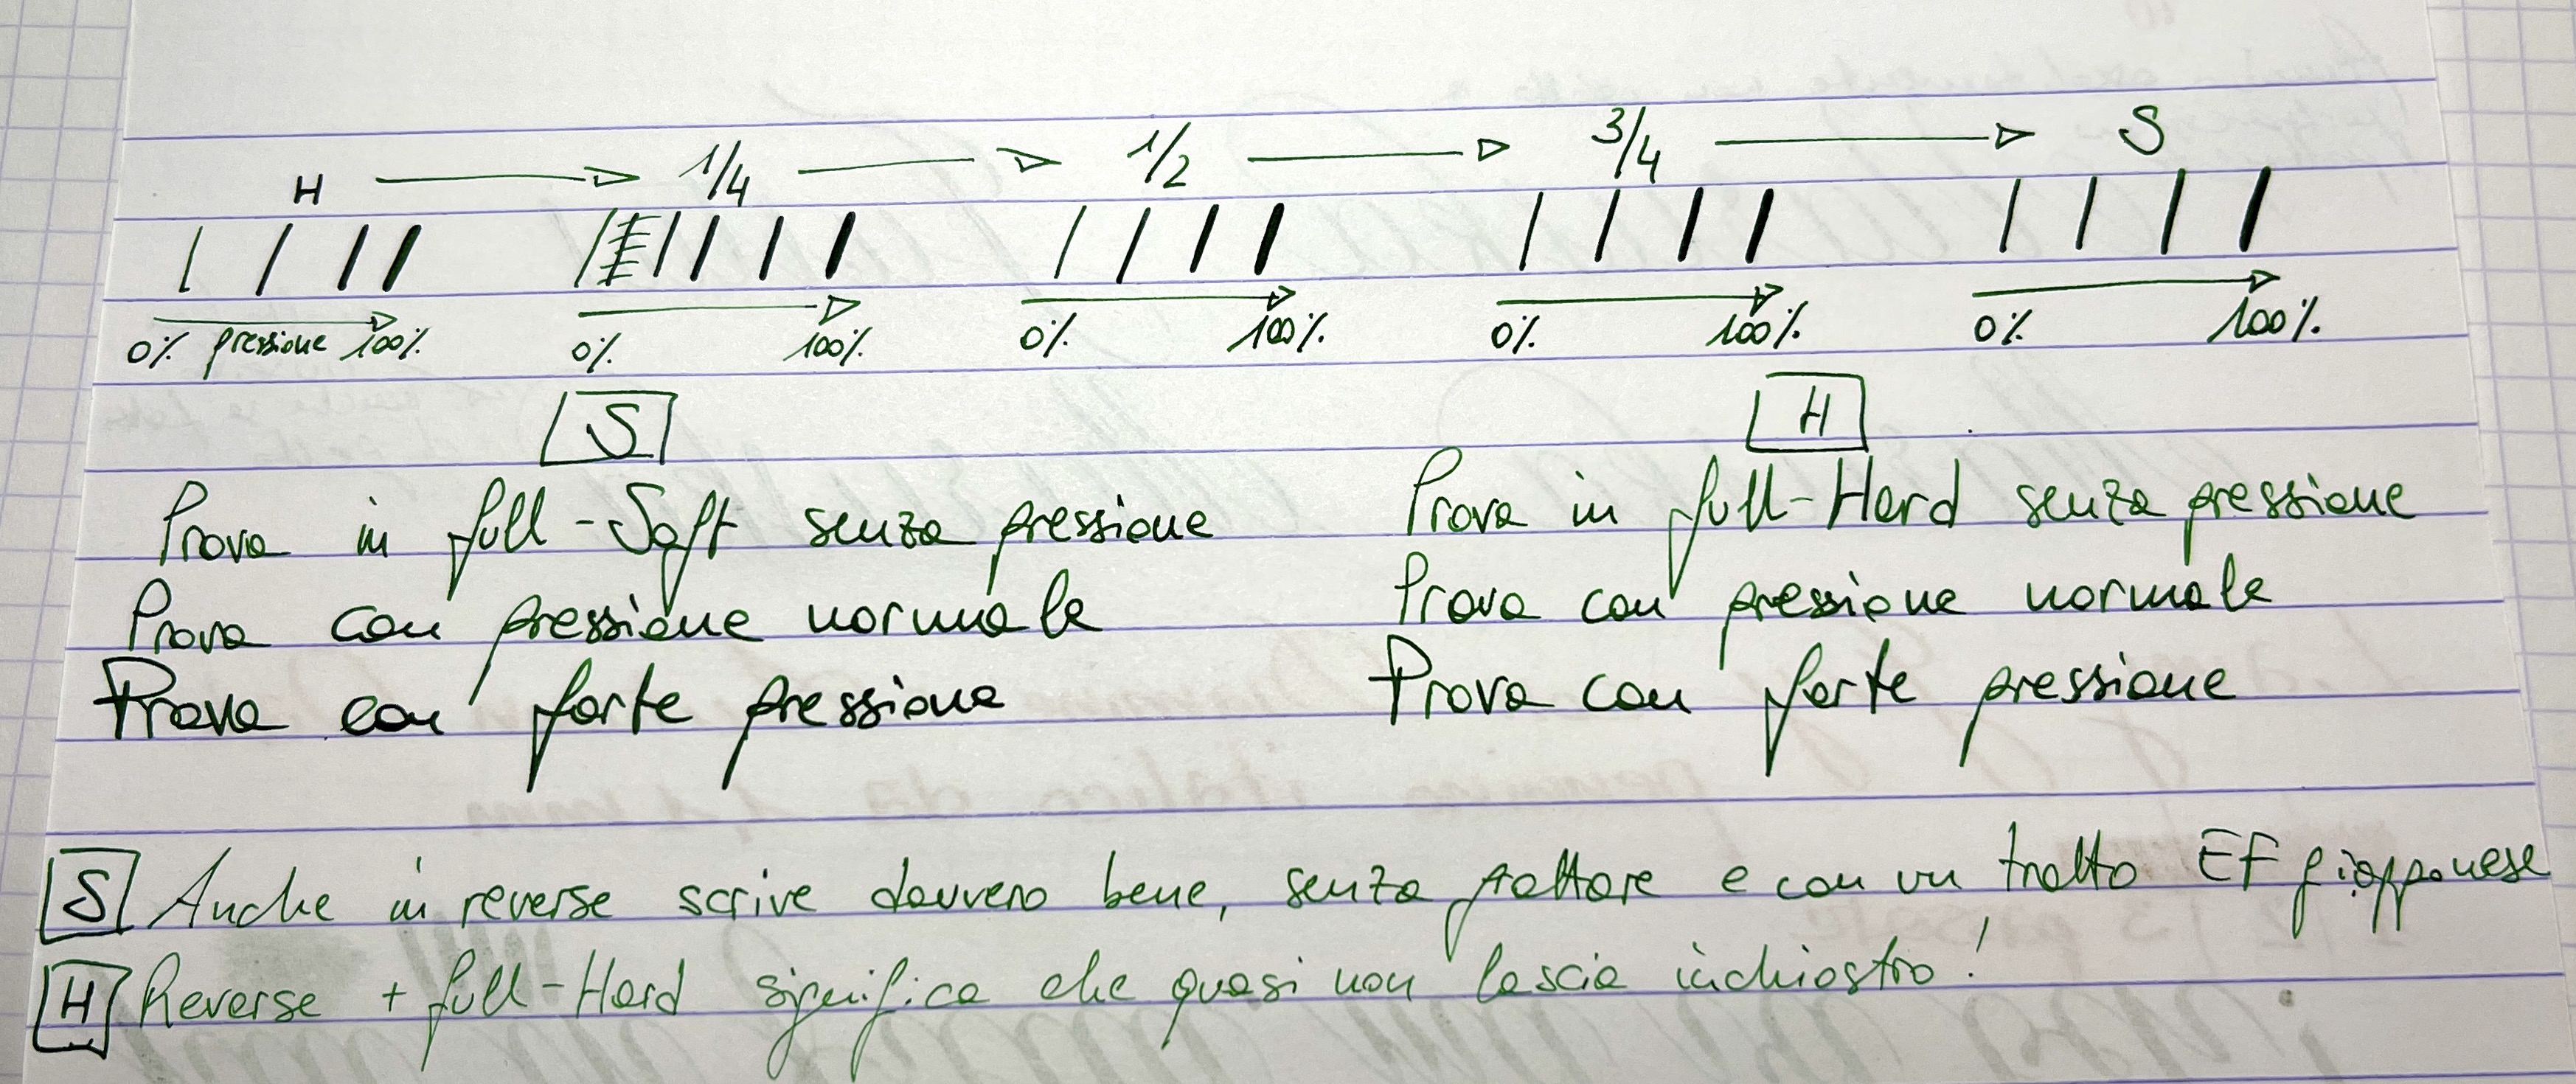 H → 1/4 → 1/2 → 3/4 → S
0% pressione 100% 0% 100% 0% 100% 0% 100% 0% 100%
S
Prova in full-Soft senza pressione
Prova con pressione normale
Prova con forte pressione
H
Prova in full-Hard senza pressione
Prova con pressione normale
Prova con forte pressione
S Anche in reverse scrive davvero bene, senza grattare e con un tratto EF giapponese
H Reverse + full-Hard significa che quasi non lascia inchiostro!